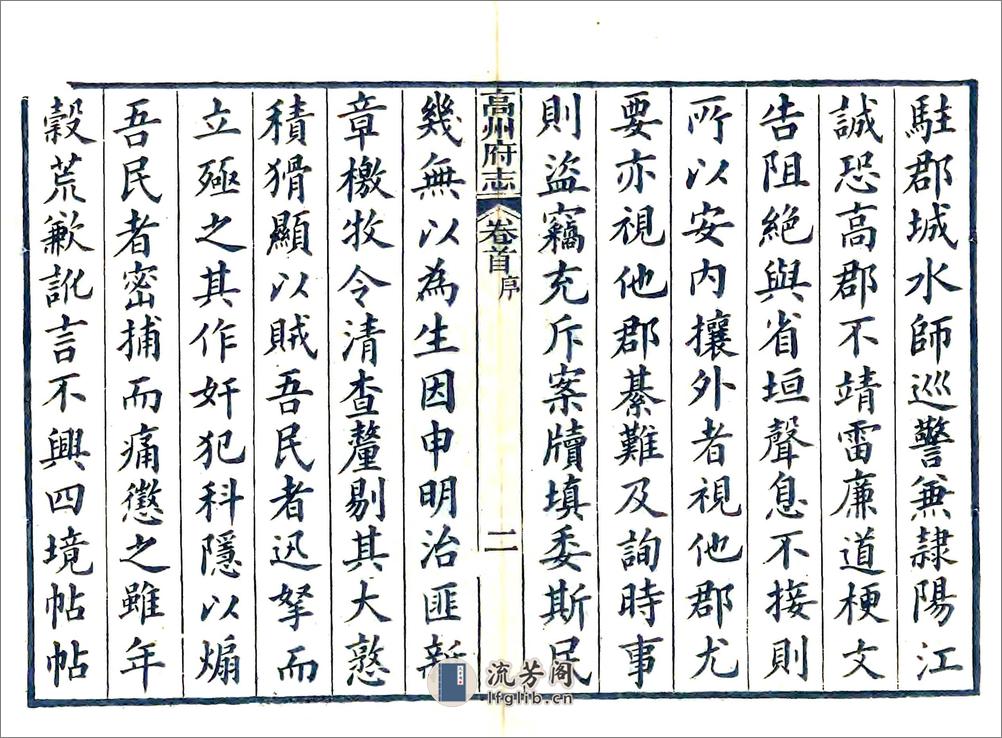 駐郡城水師巡警兼隷陽江
誠恐高郡不靖雷廉道梗文
告阻絶與省垣聲息不接則
所以安内攘外者視他郡尤
要亦視他郡綦難及詢時事
則盜竊充斥案牘填委斯民
高州府志 卷首 序 二
幾無以為生因申明治匪新
章檄牧令清查釐剔其大憝
積猾顯以賊吾民者迅拏而
立殛之其作奸犯科隱以煽
吾民者密捕而痛懲之雖年
穀荒歉訛言不興四境帖帖
流芳阁
lfglib.cn